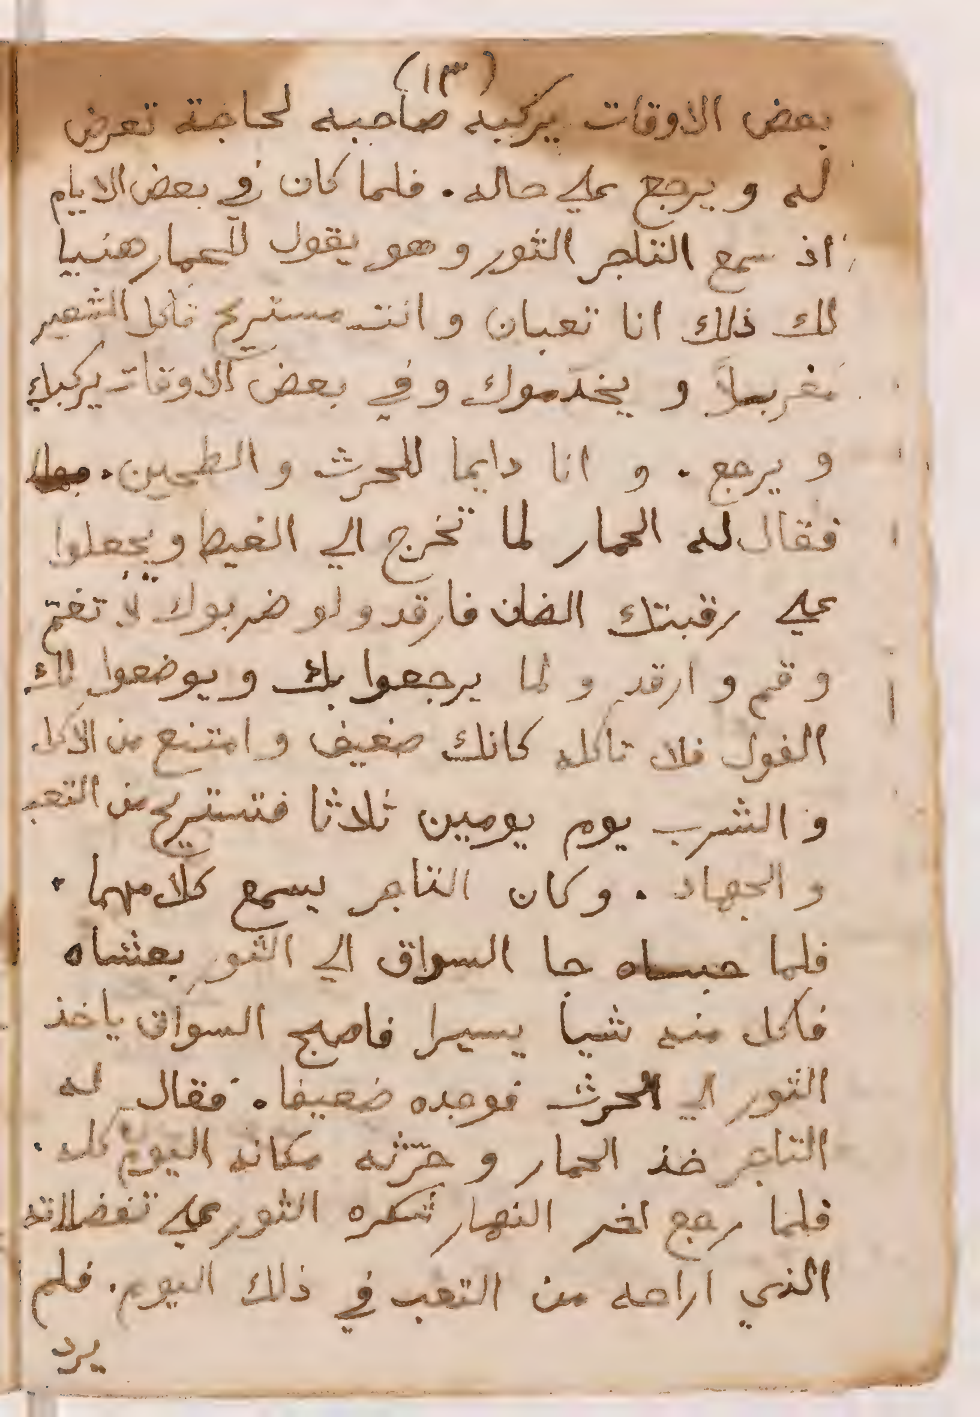 (١٣)
بعض الاوقات يركبه صاحبه لحاجة تعرض
له و يرجع علي حاله. فلما كان في بعض الايام
اذ سمع التاجر الثور و هو يقول للحمار هنيا
لك ذلك انا تعبان و انت مستريح تاكل الشعير
مغربلاً و يخدموك و في بعض الاوقات يركبك
و يرجع. و انا دايما للحرث و الطحين.
فقال له الحمار لما تخرج الي الغيط و يجعلوا
علي رقبتك الضان فارقد و لو ضربوك لا تقم
و قم و ارقد و لما يرجعوا بك و يوضعوا لك
الفول فلا تاكله كانك ضعيف و امتنع من الاكل
و الشرب يوم يومين ثلاثا فتستريح من التعب
و الجهاد. و كان التاجر يسمع كلامهما.
فلما جا السواق الي الثور بعشاه
فاكل منه شيا يسيرا فاصبح السواق ياخذ
الثور الي الحرث فوجده ضعيفا. فقال له
التاجر خذ الحمار و حرّثه مكانه اليوم كله.
فلما رجع اخر النهار شكره الثور علي تفضلاته
الذي اراحه من التعب في ذلك اليوم. فلم
يرد